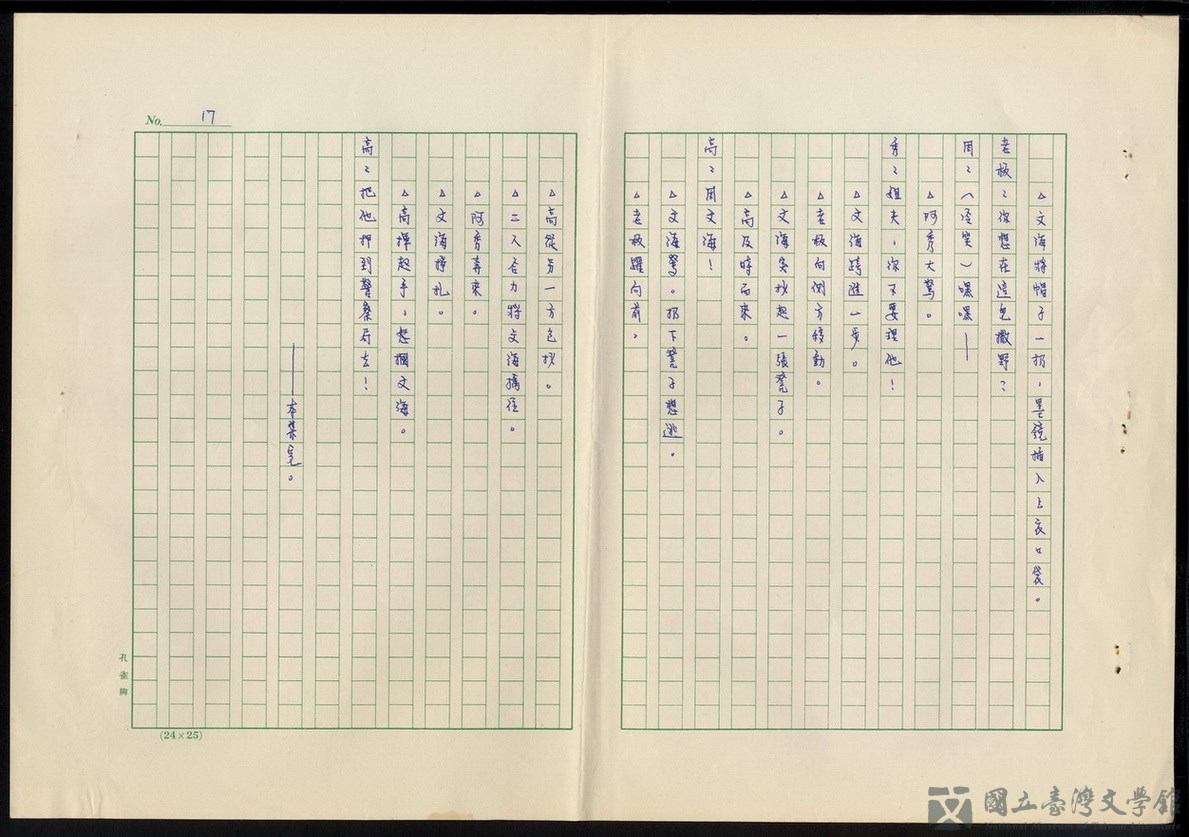 No. 17
△文海將帽子一扔,墨鏡插入上衣口袋。
老板:你想在這兒撒野?
周:(冷笑)嘿嘿—
△阿秀大驚。
秀:姐夫,你不要理他!
△文海跨進一步。
△老板向側方移動。
△文海突抄起一張凳子。
△高及時而來。
高:周文海!
△文海驚。扔下凳子想逃。
△老板躍向前。
△高從另一方包抄。
△二人合力將文海擒住。
△阿秀奔來。
△文海掙扎。
△高揮起手,怒摑文海。
高:把他押到警察局去!
——本集完。
孔雀牌
(24×25)
國立臺灣文學館